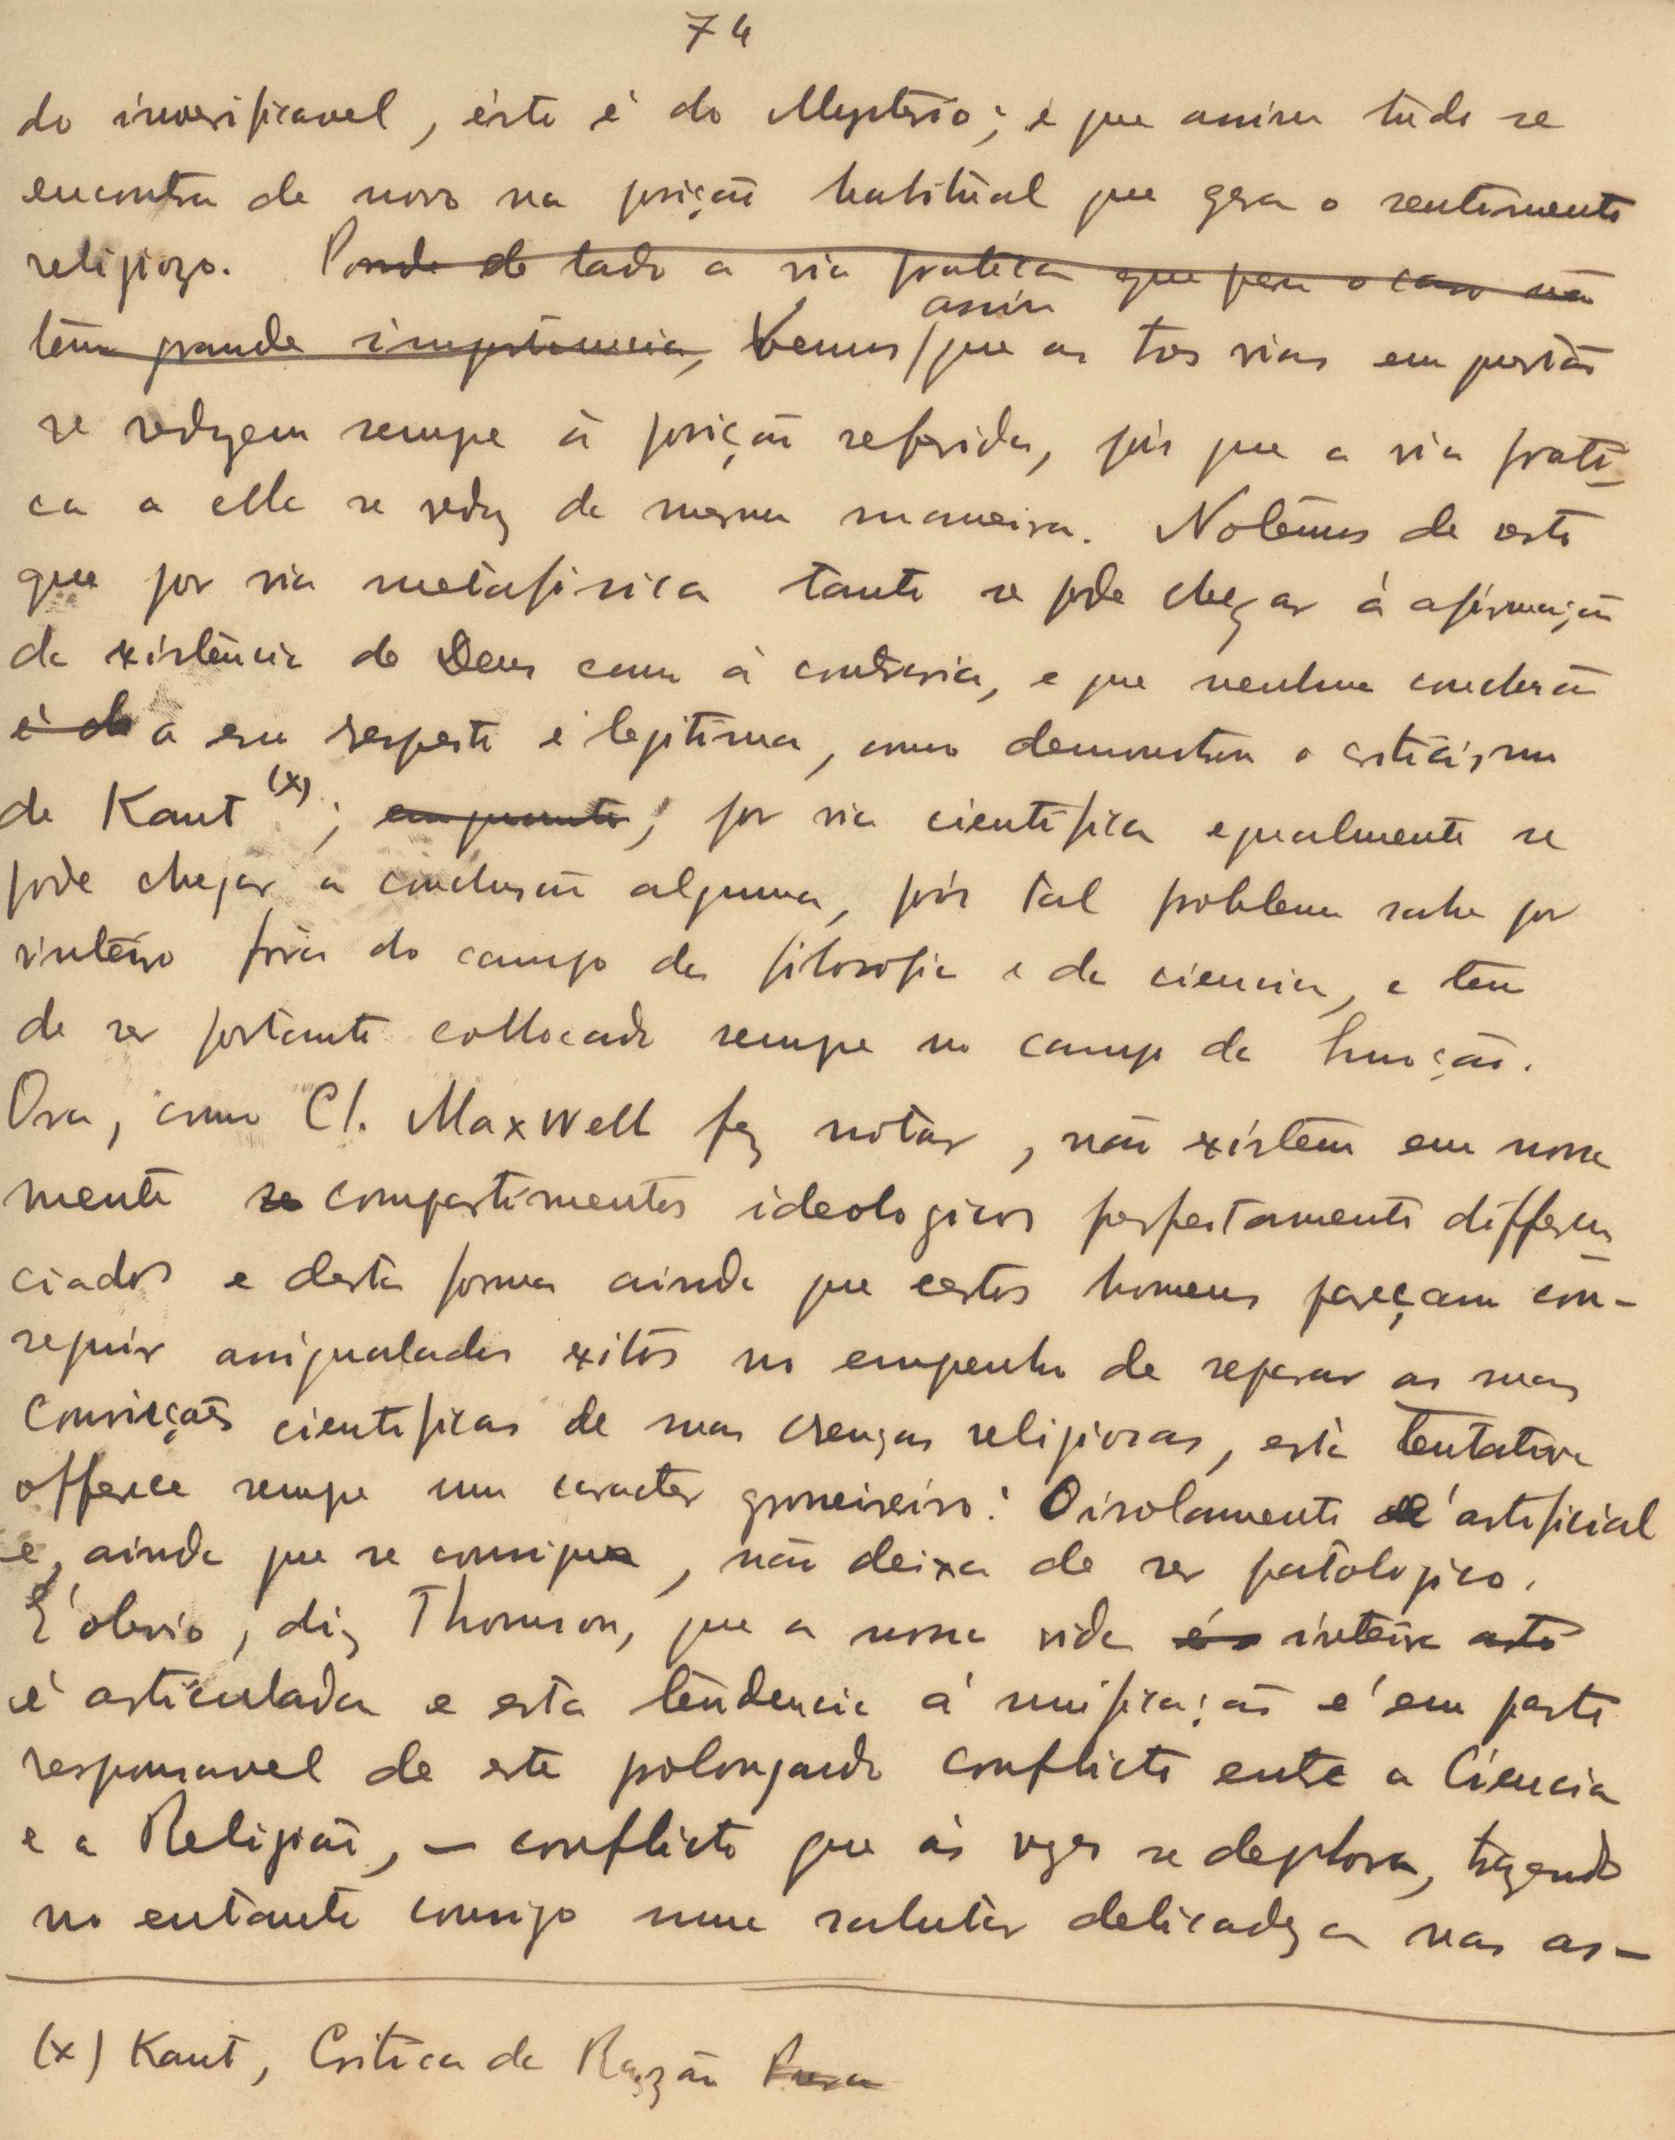 74
do inverificavel, ésto é do Mysterio; e que assim tudo se
encontra de novo na posição habitual que gera o sentimento
religiozo. Pondo de lado a via pratica que para o caso não
assim
têm grande importancia, Vemos que as tres vias em questão
se reduzem sempre á posição referida, pois que a via prati-
ca a ella se reduz da mesma maneira. Notêmos de resto
que por via metafisica tanto se póde chegar á afirmação
da existencia de Deus como á contraria, e que nenhuma conclusão
é da a esse respeito é legitima, como demonstrou o criticismo
de Kant (x); emquanto, por via cientifica egualmente se
póde chegar a conclusão alguma, pois tal problema sahe por
inteiro fóra do campo da filosofia e da ciencia, e tem
de ser portanto collocado sempre no campo da
Ora, como Cl. Maxwell fez notar, não existem em nossa
mente se compartimentos ideologicos perfeitamente differen
ciados e desta forma ainda que certos homens pareçam con-
seguir assignalados exitos no empenho de separar as suas
convicções cientificas de suas crenças religiosas, esta tentativa
offerece sempre um caracter grosseiro: O isolamento é artificial
e, ainda que se consiga, não deixa de ser patologico.
É obvio, diz Thomson, que a nossa vida é a inteira
é articulada e esta tendencia á unificação é em parte
responsavel de este prolongado conflicto entre a Ciencia
e a Religião, — conflicto que ás vezes se deplora, trazendo
no entanto comsigo uma salutar delicadeza nas as-
(x) Kant, Critica da Razão Pura